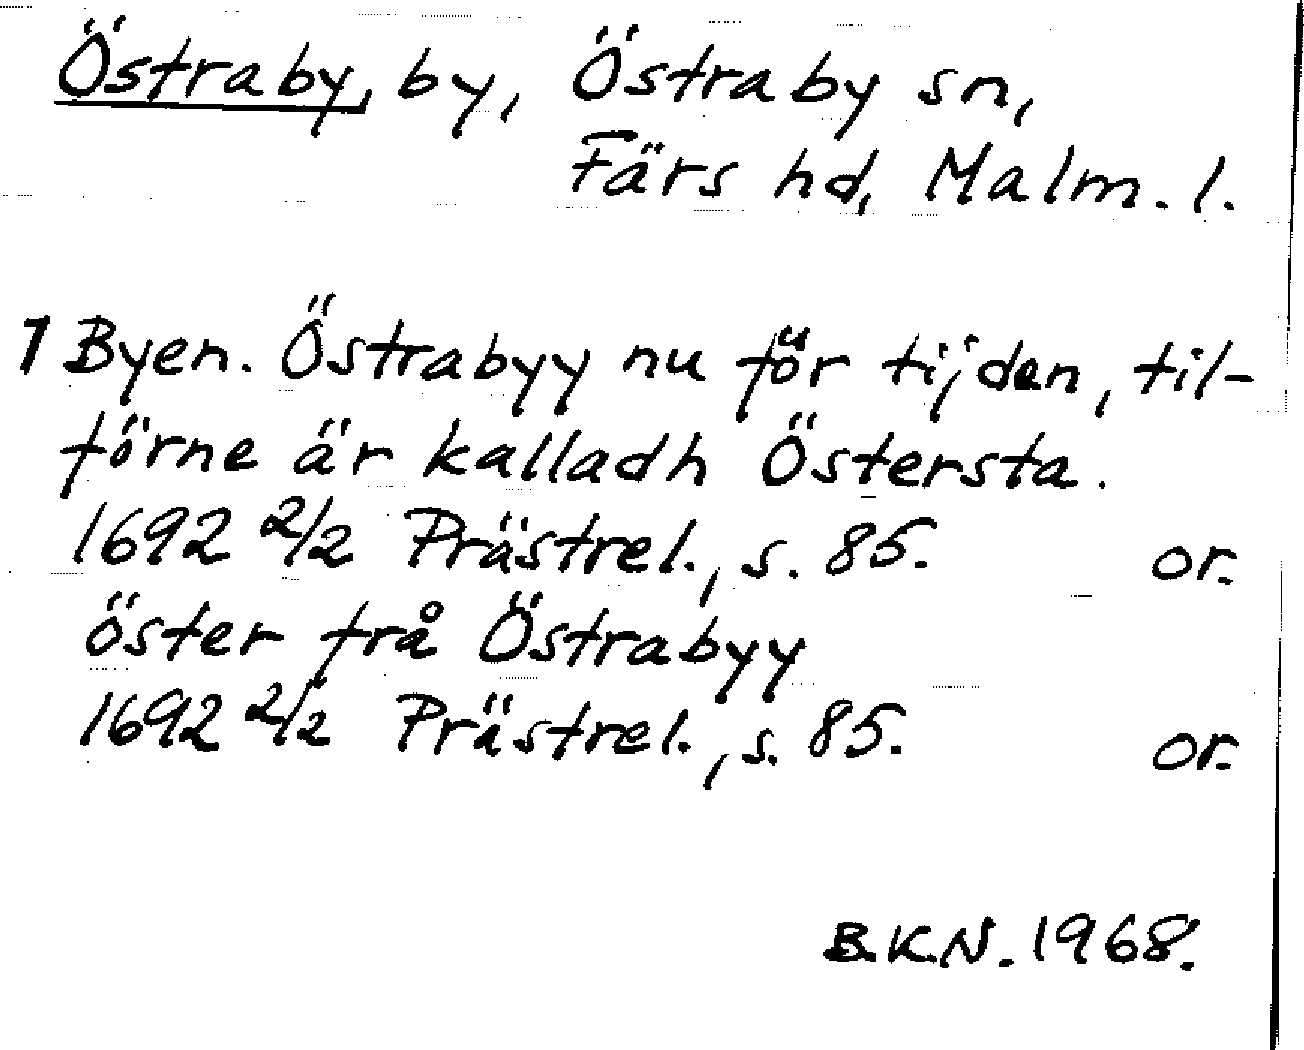 Östraby, by, Östraby sn,
Färs hd, Malm. l.
1 Byen. Östrabyy nu för tijden, til-
förne är kalladh Östersta.
1692 2/2 Prästrel., s. 85. or.
öster frå Östrabyy
1692 2/2 Prästrel., s. 85. or.
B.K.N. 1968.